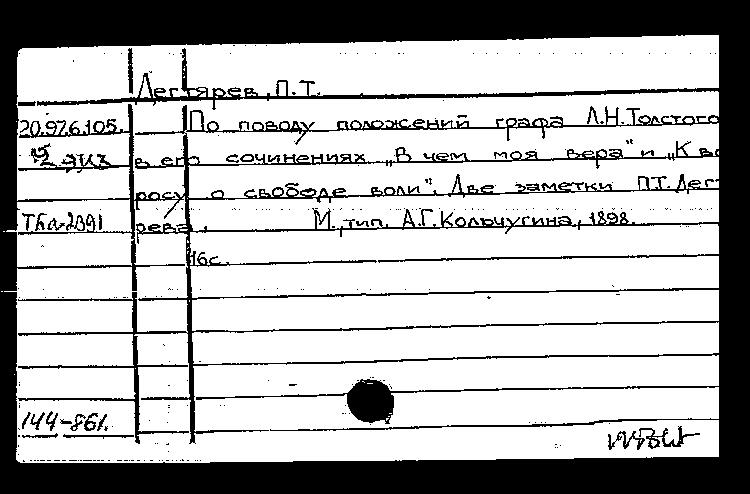 Дегтярев, П.Т.
20.97.6.105. По поводу положений графа Л.Н.Толстого
2 экз в его сочинениях „В чем моя вера" и „К во
росу о свободе воли". Две заметки П.Т.Дегт
рева. М., тип. А.Г.Кольчугина, 1898.
16с.
144-861.